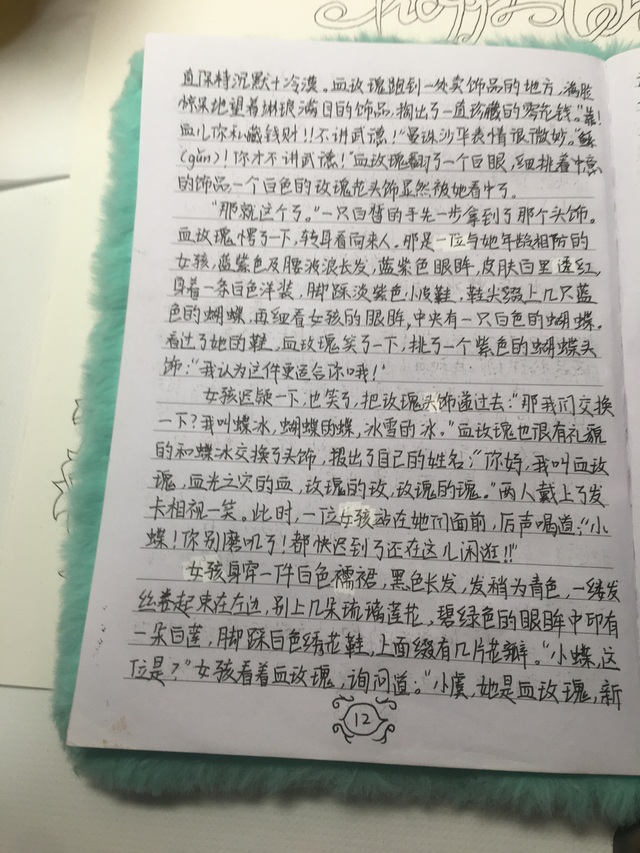 直保持沉默十冷漠。血玫瑰跑到一处卖饰品的地方,满脸
惊呆地望着琳琅满目的饰品,掏出了一直珍藏的零花钱。"
血儿你私藏钱财!!不讲武德!"曼珠沙华表情很微妙。"
(gǔn)!你才不讲武德!"血玫瑰翻了一个白眼,细挑着中意
的饰品,一个白色的玫瑰花头饰显然被她看中了。
"那就这个了。"一只白皙的手先一步拿到了那个头饰。
血玫瑰愣了一下,转身看向来人。那是一位与她年龄相仿的
女孩,蓝紫色及腰波浪长发,蓝紫色眼眸,皮肤白里透红,
身着一条白色洋装,脚踩淡紫色小皮鞋,鞋尖缀上几只蓝
色的蝴蝶,再细看女孩的眼眸,中央有一只白色的蝴蝶。
看过了她的鞋,血玫瑰笑了一下,挑了一个紫色的蝴蝶头
饰:"我认为这件更适合你哦!"
女孩迟疑一下,也笑了,把玫瑰头饰递过去:"那我们交换
一下?我叫蝶冰,蝴蝶的蝶,冰雪的冰。"血玫瑰也很有礼貌
的和蝶冰交换了头饰,报出了自己的姓名:"你好,我叫血玫
瑰,血光之灾的血,玫瑰的玫,玫瑰的瑰。"两人戴上了发
卡相视一笑。此时,一位女孩站在她们面前,厉声喝道:"小
蝶!你别磨叽了!都快迟到了还在这儿闲逛!!"
女孩身穿一件白色襦裙,黑色长发,发稍为青色,一缕发
丝卷起束在左边,别上几朵琉璃莲花,碧绿色的眼眸中印有
一朵白莲,脚踩白色绣花鞋,上面缀有几片花瓣。"小蝶,这
位是?"女孩看着血玫瑰,询问道:"小虞,她是血玫瑰,新
12